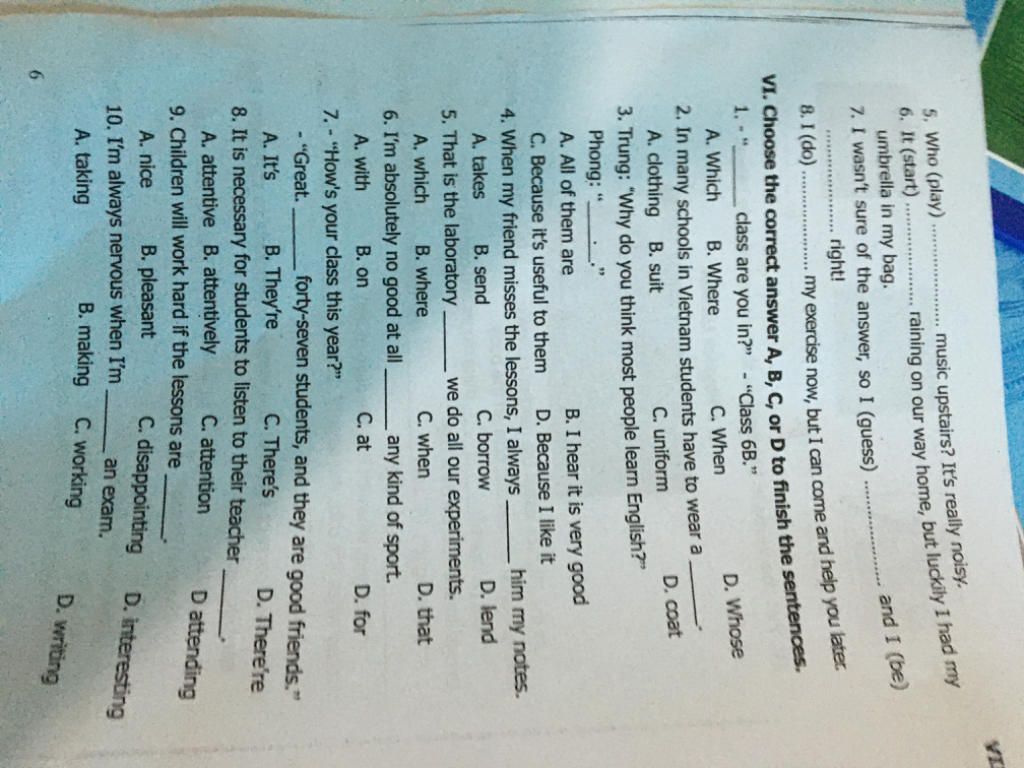 5. Who (play) .................. music upstairs? It's really noisy.
6. It (start) .................. raining on our way home, but luckily I had my
umbrella in my bag.
7. I wasn't sure of the answer, so I (guess) .................. and I (be)
.................. right!
8. I (do) .................. my exercise now, but I can come and help you later.
VI. Choose the correct answer A, B, C, or D to finish the sentences.
1. - "______ class are you in?" - "Class 6B."
A. Which B. Where C. When D. Whose
2. In many schools in Vietnam students have to wear a ______.
A. clothing B. suit C. uniform D. coat
3. Trung: "Why do you think most people learn English?"
Phong: "______."
A. All of them are B. I hear it is very good
C. Because it's useful to them D. Because I like it
4. When my friend misses the lessons, I always ______ him my notes.
A. takes B. send C. borrow D. lend
5. That is the laboratory ______ we do all our experiments.
A. which B. where C. when D. that
6. I'm absolutely no good at all ______ any kind of sport.
A. with B. on C. at D. for
7. - "How's your class this year?"
- "Great. ______ forty-seven students, and they are good friends."
A. It's B. They're C. There's D. There're
8. It is necessary for students to listen to their teacher ______.
A. attentive B. attentively C. attention D attending
9. Children will work hard if the lessons are ______.
A. nice B. pleasant C. disappointing D. interesting
10. I'm always nervous when I'm ______ an exam.
A. taking B. making C. working D. writing
6